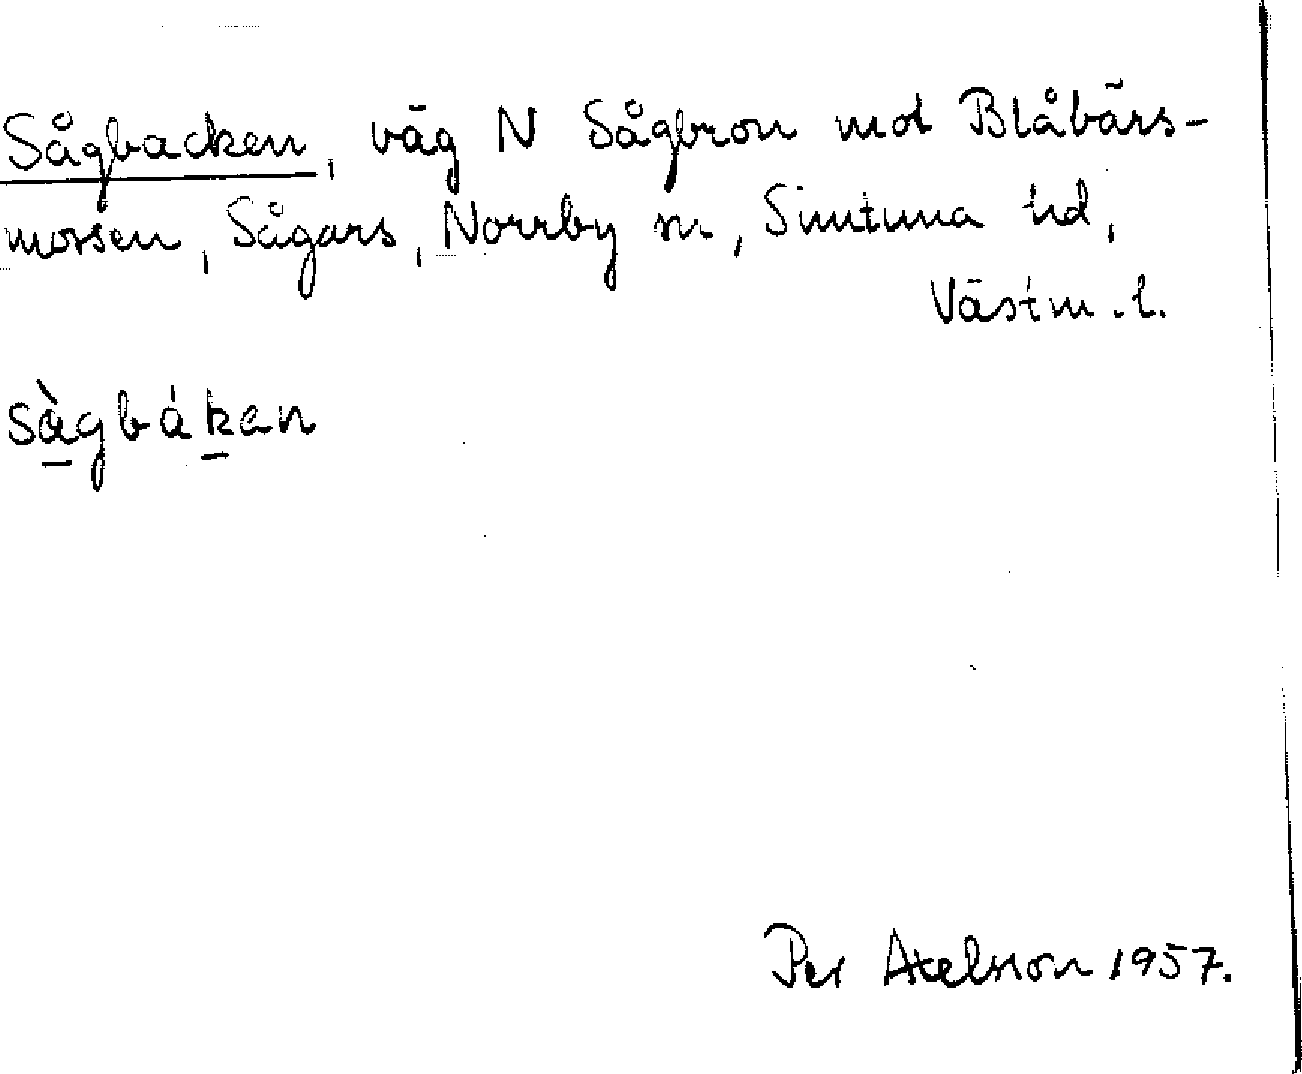 Sågbacken, väg N Sågbron mot Blåbärs-
mossen, Sågars, Norrby sn, Simtuna hd,
Västm. l.
sàgbákan
Per Axelsson 1957.